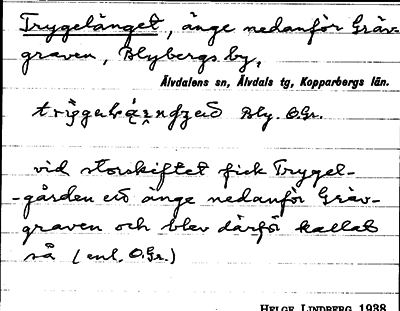 Trygelänget, änge nedanför Gräv-
graven, Blybergs by,
Älvdalens sn, Älvdals tg, Kopparbergs län.
Bly. O.Gr.
vid storskiftet fick Trygel-
-gården ett änge nedanför Gräv-
graven och blev därför kallat
så (enl. O.Gr.)
HELGE LINDBERG 1938